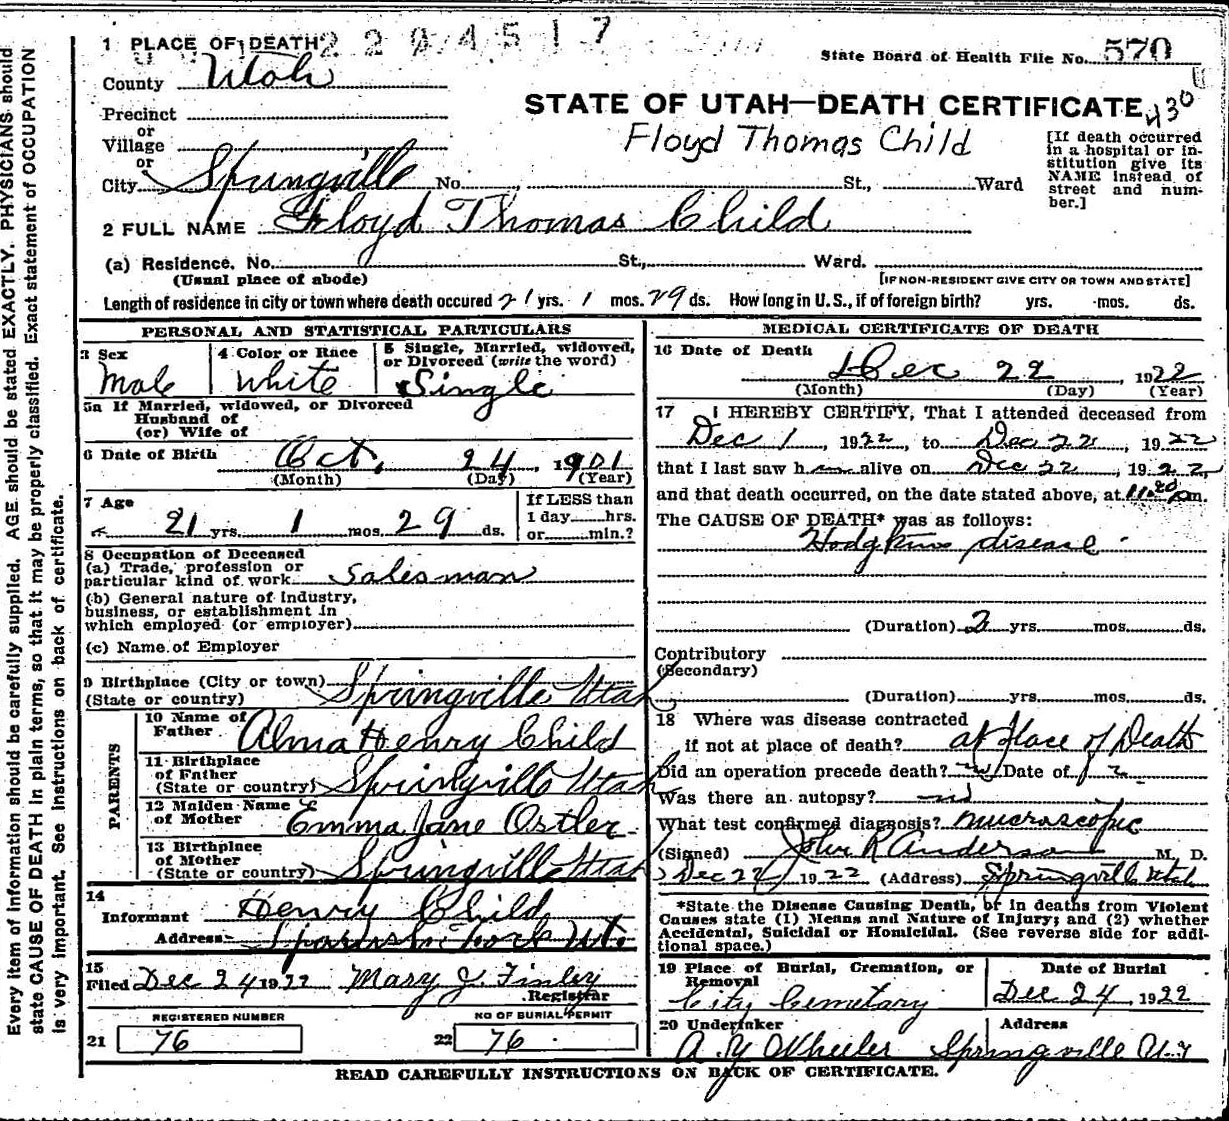 Every item of information should be carefully supplied. AGE should be stated EXACTLY. PHYSICIANS should
state CAUSE OF DEATH in plain terms, so that it may be properly classified. Exact statement of OCCUPATION
is very important. See instructions on back of certificate.
1 PLACE OF DEATH
State Board of Health File No. 570
County Utah
STATE OF UTAH—DEATH CERTIFICATE
Floyd Thomas Child
Precinct
or
Village
or
City Springville No. , St., Ward
[If death occurred
in a hospital or in-
stitution give its
NAME instead of
street and num-
ber.]
2 FULL NAME Floyd Thomas Child
(a) Residence. No. St., Ward.
(Usual place of abode) [IF NON-RESIDENT GIVE CITY OR TOWN AND STATE]
Length of residence in city or town where death occured 21 yrs. 1 mos. 29 ds. How long in U. S., if of foreign birth? yrs. mos. ds.
PERSONAL AND STATISTICAL PARTICULARS
3 Sex
Male
4 Color or Race
White
5 Single, Married, widowed,
or Divorced (write the word)
Single
5a If Married, widowed, or Divorced
Husband of
(or) Wife of
6 Date of Birth Oct. 24 1901
(Month) (Day) (Year)
7 Age
21 yrs. 1 mos. 29 ds.
If LESS than
1 day hrs.
or min.?
8 Occupation of Deceased
(a) Trade, profession or
particular kind of work Salesman
(b) General nature of industry,
business, or establishment in
which employed (or employer)
(c) Name of Employer
9 Birthplace (City or town) Springville Utah
(State or country)
PARENTS
10 Name of
Father Alma Henry Child
11 Birthplace
of Father
(State or country) Springville Utah
12 Maiden Name
of Mother Emma Jane Ostler
13 Birthplace
of Mother
(State or country) Springville Utah
14
Informant Henry Child
Address Spanish Fork Ut.
15
Filed Dec 24 1922 Mary J. Finley
Registrar
REGISTERED NUMBER
21 76
NO OF BURIAL PERMIT
22 76
MEDICAL CERTIFICATE OF DEATH
16 Date of Death
Dec 22 1922
(Month) (Day) (Year)
17 I HEREBY CERTIFY, That I attended deceased from
Dec 1, 1922, to Dec 22, 1922
that I last saw h alive on Dec 22, 1922,
and that death occurred, on the date stated above, at m.
The CAUSE OF DEATH* was as follows:
Hodgkins disease
(Duration) 2 yrs. mos. ds.
Contributory
(Secondary)
(Duration) yrs. mos. ds.
18 Where was disease contracted
if not at place of death? at place of Death
Did an operation precede death? no Date of
Was there an autopsy? no
What test confirmed diagnosis? Microscopic
(Signed) John R Anderson M. D.
Dec 22, 1922 (Address) Springville Utah
*State the Disease Causing Death, or in deaths from Violent
Causes state (1) Means and Nature of Injury; and (2) whether
Accidental, Suicidal or Homicidal. (See reverse side for addi-
tional space.)
19 Place of Burial, Cremation, or
Removal
City Cemetary
Date of Burial
Dec 24, 1922
20 Undertaker
A. Y Wheeler
Address
Springville Ut
READ CAREFULLY INSTRUCTIONS ON BACK OF CERTIFICATE.